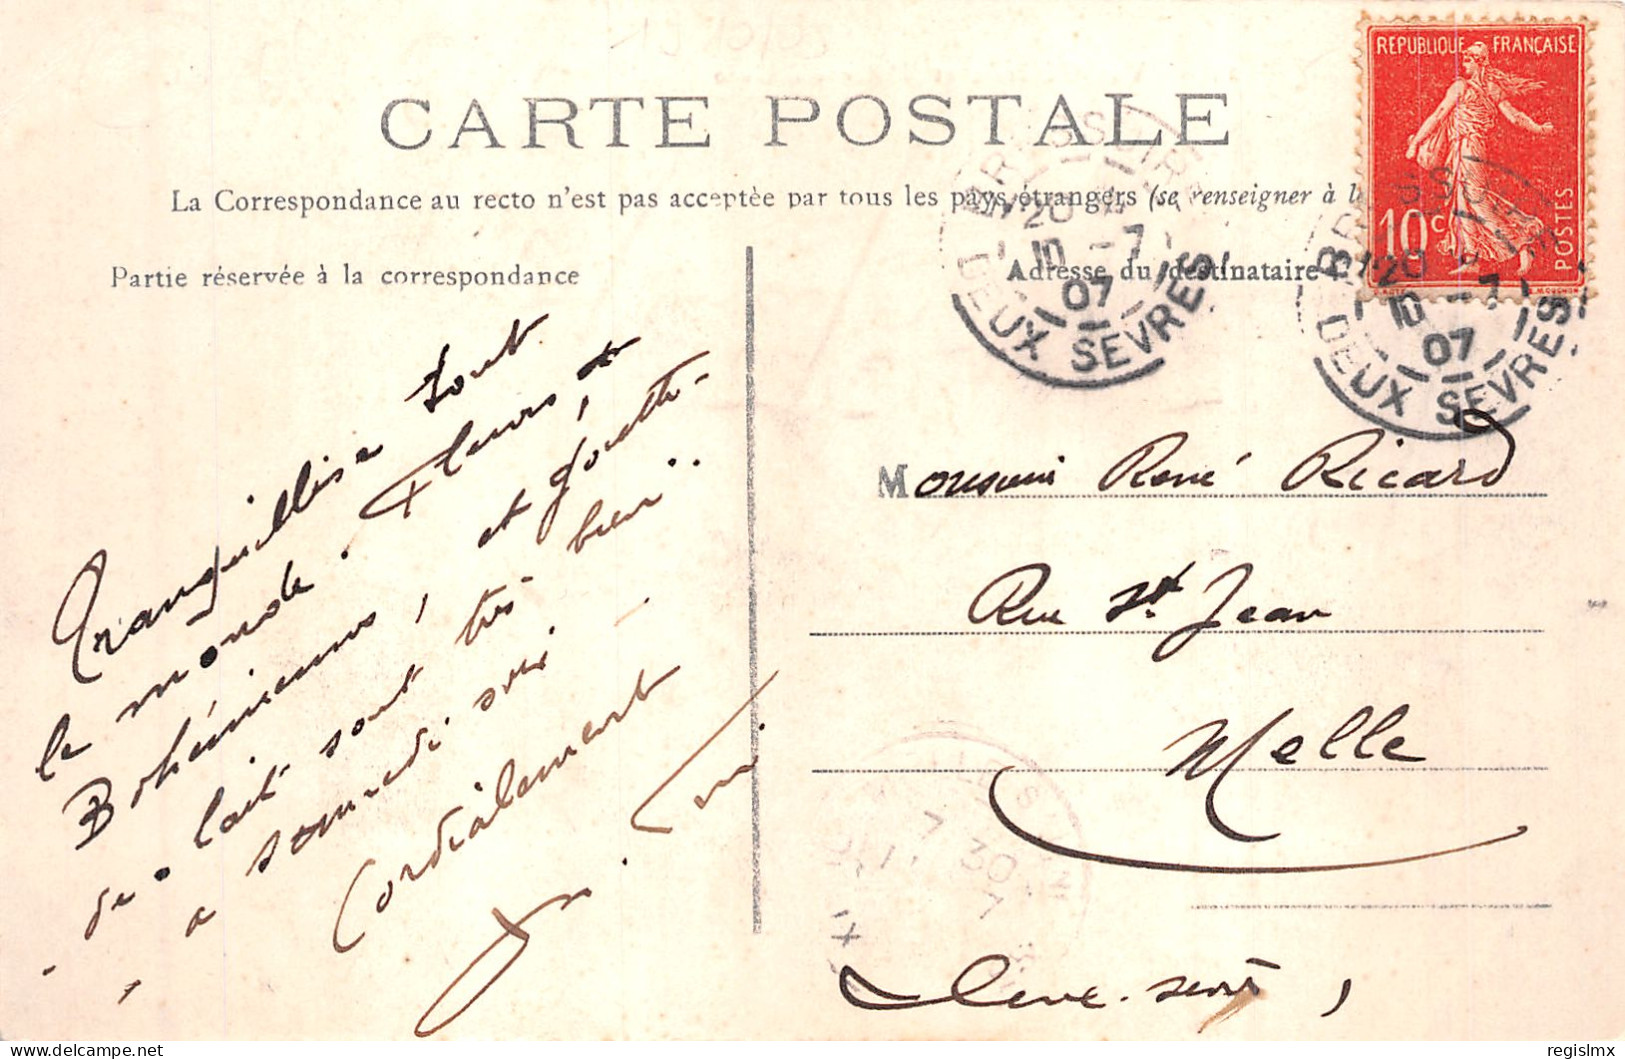 CARTE POSTALE
La Correspondance au recto n'est pas acceptée par tous les pays étrangers (se renseigner à la
Partie réservée à la correspondance
Adresse du destinataire
REPUBLIQUE FRANÇAISE
10c
POSTES
BRESSUIRE
20
10 -7
07
DEUX SEVRES
BRESSUIRE
20
10 -7
07
DEUX SEVRES
Tranquillise tout
le monde. Fleurs,
Bohémiens, et goutte
de lait sont très bien..
a samedi soir
Cordialement
Monsieur René Ricard
Rue St Jean
Melle
Deux-Sèvres
7 30
regislmx